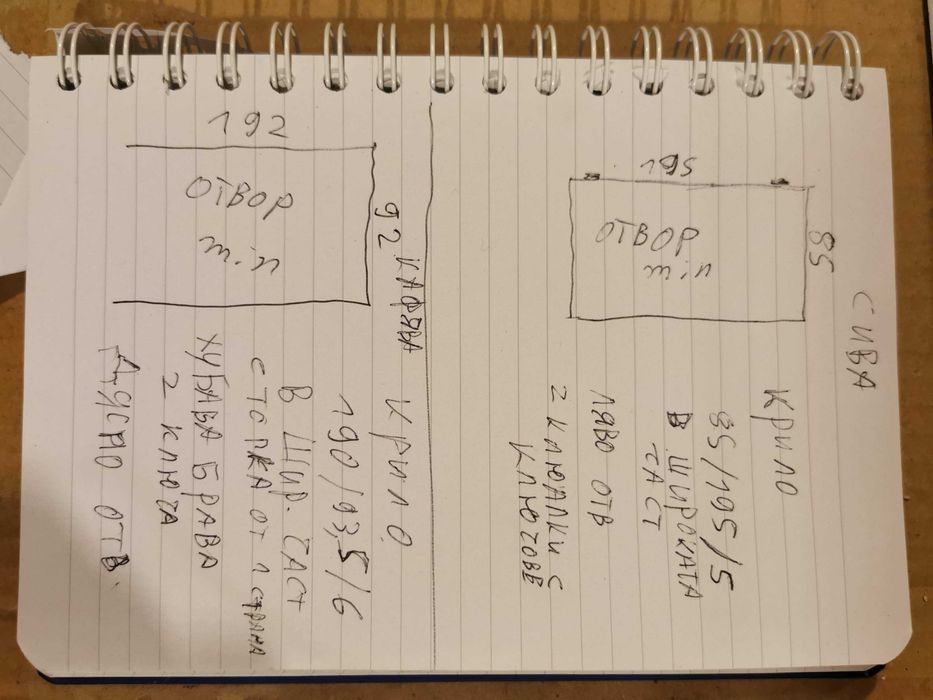 СИВА
85
195
ОТВОР
КРИЛО
85/195/5
В ШИРОКАТА
ЧАСТ
ЛЯВО ОТВ
2 КЛЮАЛКИ С
КЛЮЧОВЕ
КАФЯВА
92
192
ОТВОР
КРИЛО
190/93,5/6
В ШИР. ЧАСТ
СТОПКА ОТ 1 СТРАНА
ХУБАВА БРАВА
2 КЛЮЧА
ДЯСНО ОТВ.